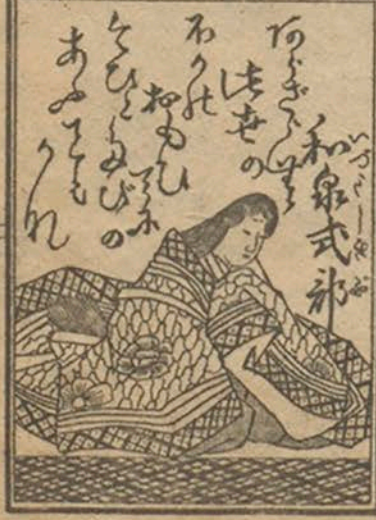 和泉式部
いづみしきぶ
あらざらむ
此世の
ほかの
おもひ
でに
今ひとたびの
あふことも
がな